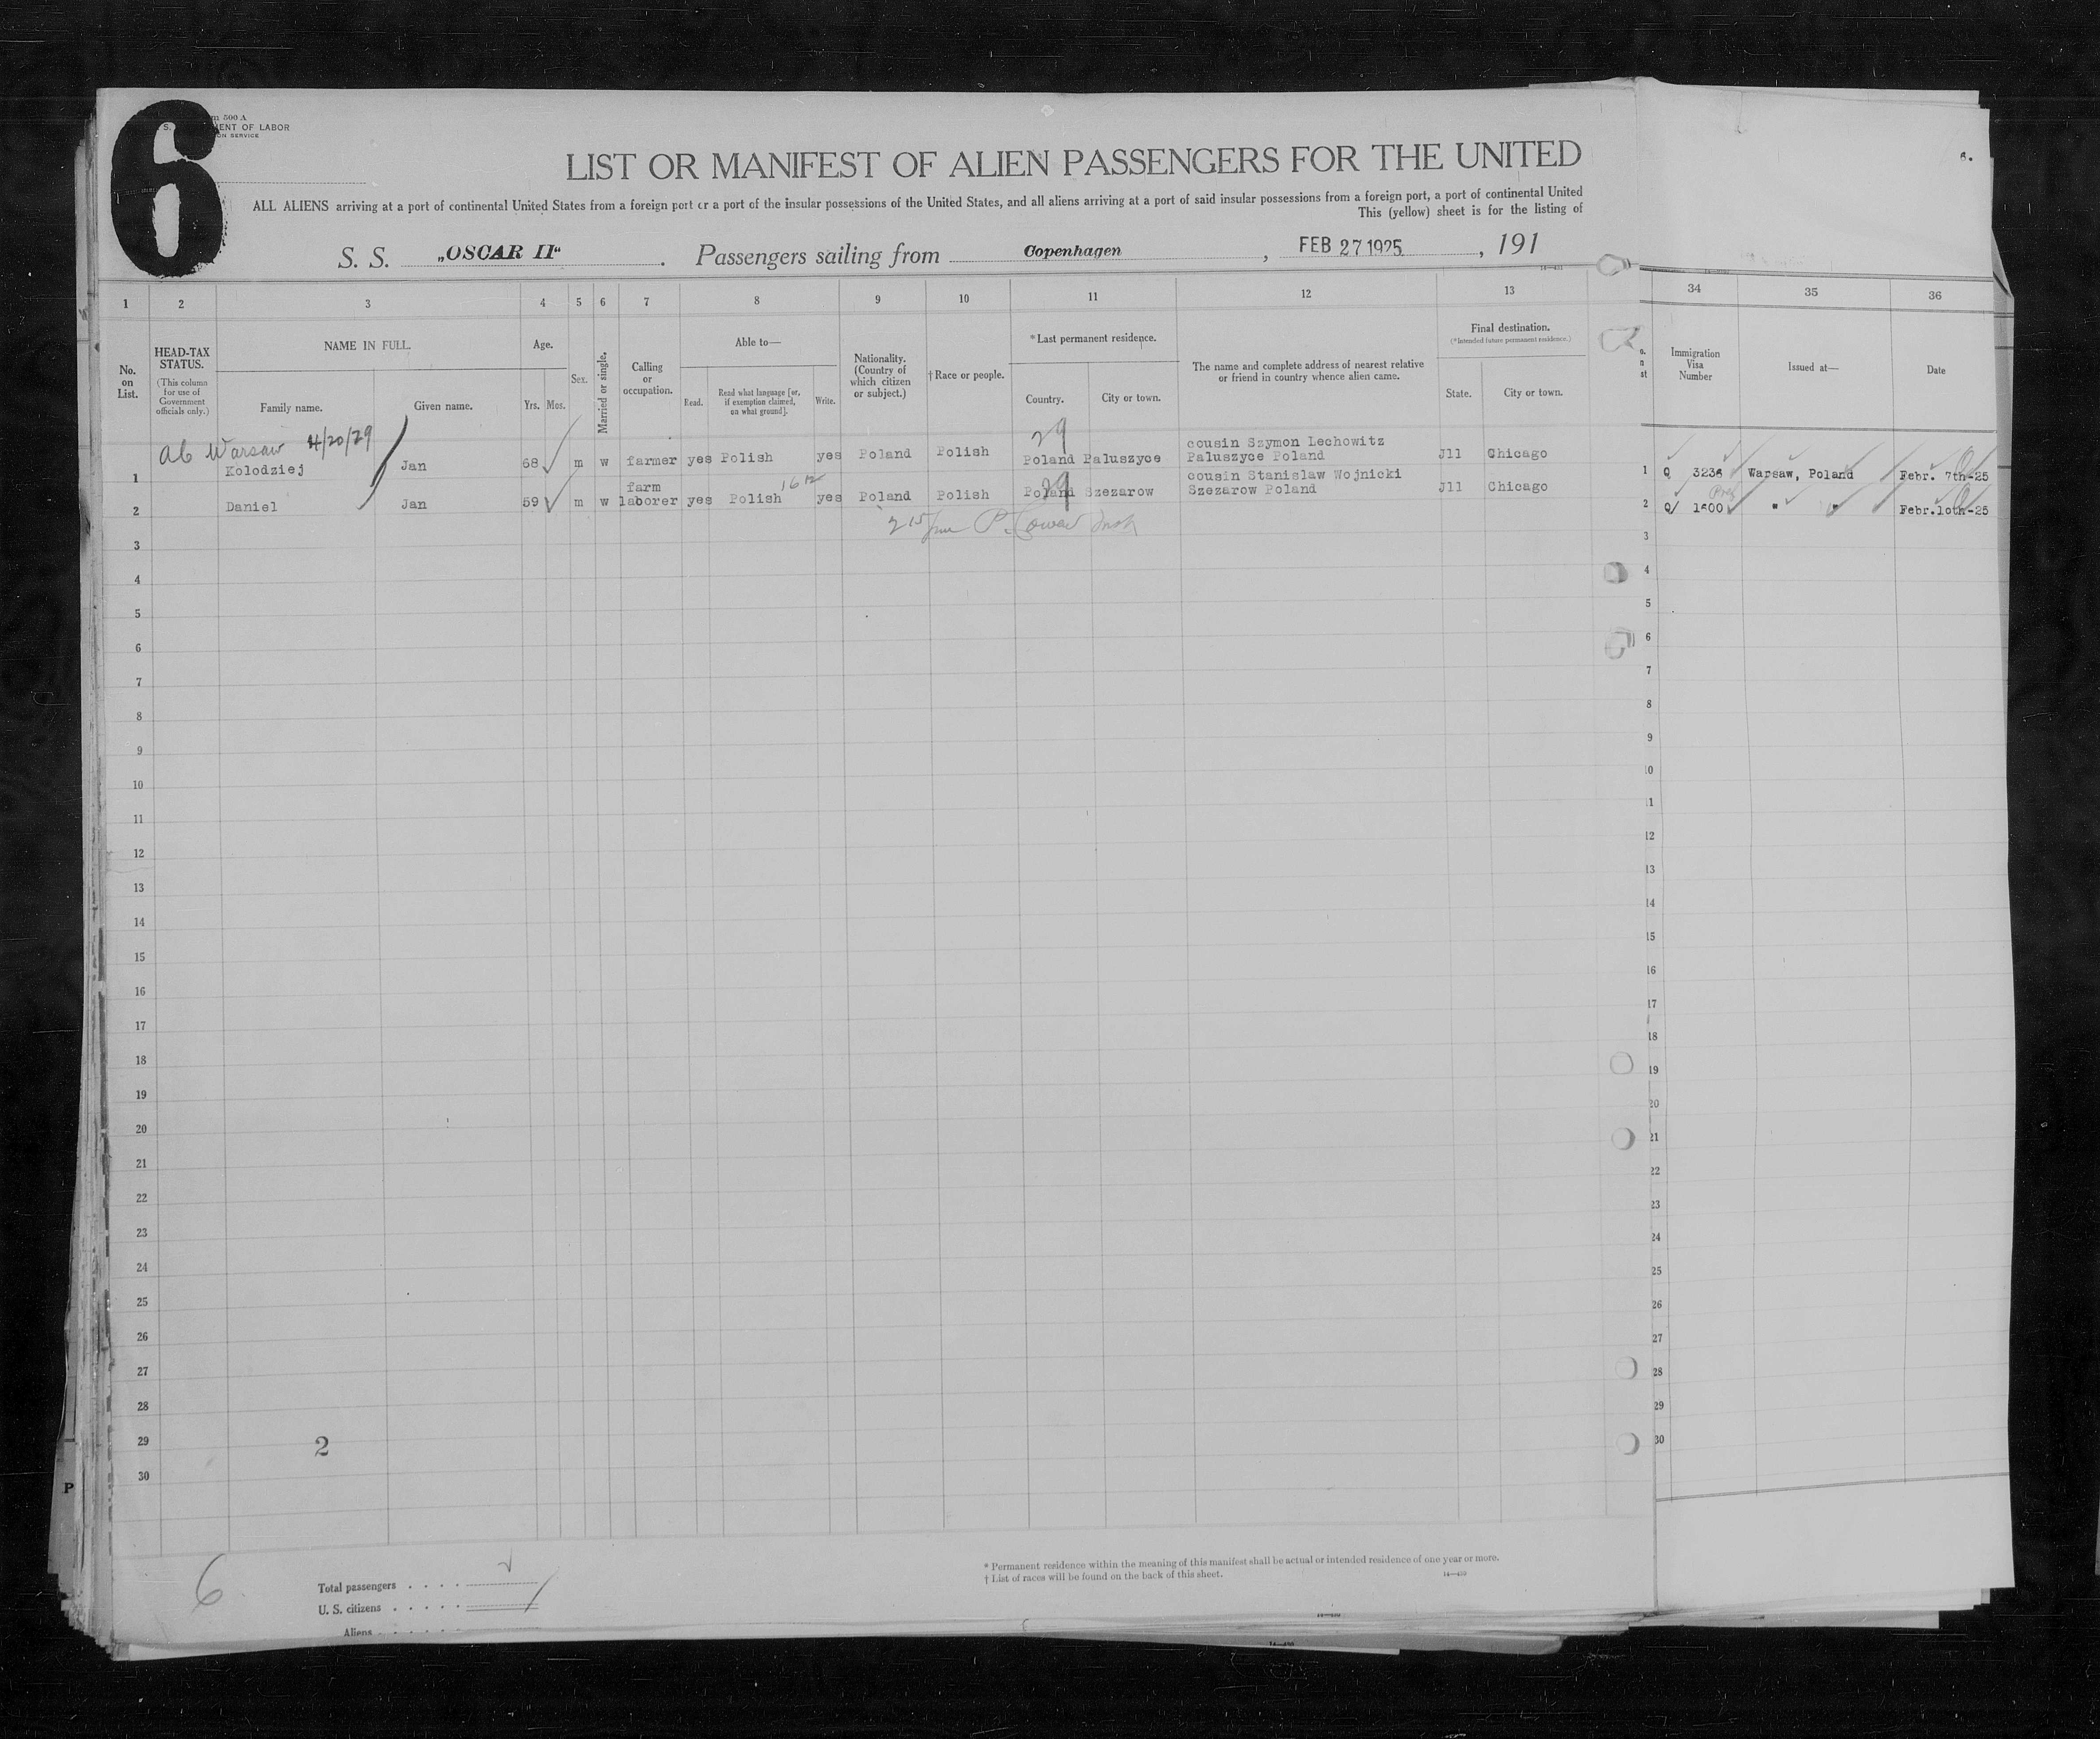 6
500 A
OF LABOR
ON SERVICE
LIST OR MANIFEST OF ALIEN PASSENGERS FOR THE UNITED
ALL ALIENS arriving at a port of continental United States from a foreign port or a port of the insular possessions of the United States, and all aliens arriving at a port of said insular possessions from a foreign port, a port of continental United
This (yellow) sheet is for the listing of
S. S. „OSCAR II“ . Passengers sailing from Copenhagen , FEB 27 1925 , 191
1 2 3 4 5 6 7 8 9 10 11 12 13 34 35 36
No. on List.
HEAD-TAX STATUS.
(This column for use of Government officials only.)
NAME IN FULL.
Family name. Given name.
Age.
Yrs. Mos.
Sex.
Married or single.
Calling or occupation.
Able to—
Read. Read what language [or, if exemption claimed, on what ground]. Write.
Nationality. (Country of which citizen or subject.)
† Race or people.
*Last permanent residence.
Country. City or town.
The name and complete address of nearest relative or friend in country whence alien came.
Final destination.
(*Intended future permanent residence.)
State. City or town.
Immigration Visa Number
Issued at—
Date
Warsaw 4/20/29
29
1 Kolodziej Jan 68 m w farmer yes Polish yes Poland Polish Poland Paluszyce cousin Szymon Lechowitz Paluszyce Poland Jll Chicago 1 Q 3236 Warsaw, Poland Febr. 7th-25
29
2 Daniel Jan 59 m w farm laborer yes Polish yes Poland Polish Poland Szezarow cousin Stanislaw Wojnicki Szezarow Poland Jll Chicago 2 Q/ 1600 " " Febr.10th-25
3 3
4 4
5 5
6 6
7 7
8 8
9 9
10 10
11 11
12 12
13 13
14 14
15 15
16 16
17 17
18 18
19 19
20 20
21 21
22 22
23 23
24 24
25 25
26 26
27 27
28 28
29 2 29
30 30
6
Total passengers . . . .
U. S. citizens . . . . .
Aliens . . . . . .
* Permanent residence within the meaning of this manifest shall be actual or intended residence of one year or more.
† List of races will be found on the back of this sheet.
14—430
P